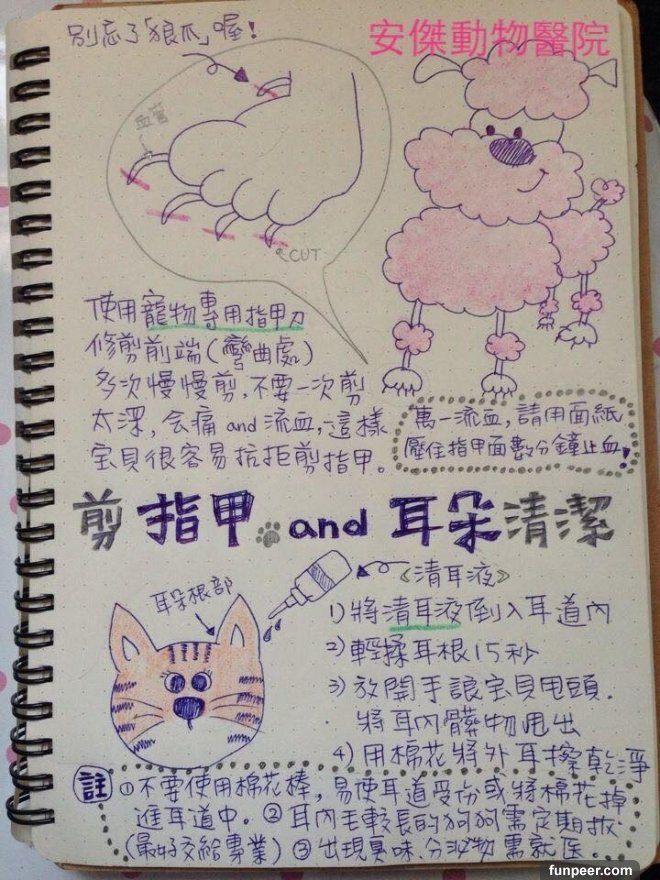 別忘了「狼爪」喔！
安傑動物醫院
血管
CUT
使用寵物專用指甲刀
修剪前端(彎曲處)
多次慢慢剪,不要一次剪
太深,会痛 and 流血,這樣
宝貝很容易抗拒剪指甲。
萬一流血,請用面紙
壓住指甲面數分鐘止血!
剪指甲 and 耳朵清潔
耳朵根部
《清耳液》
1)將清耳液倒入耳道內
2)輕揉耳根15秒
3)放開手讓宝貝甩頭.
將耳內髒物甩出
4)用棉花將外耳擦乾淨
註 ①不要使用棉花棒,易使耳道受傷或將棉花掉
進耳道中.②耳內毛較長的狗狗需定期拔
(最好交給專業)③出現臭味、分泌物需就医.
funpeer.com